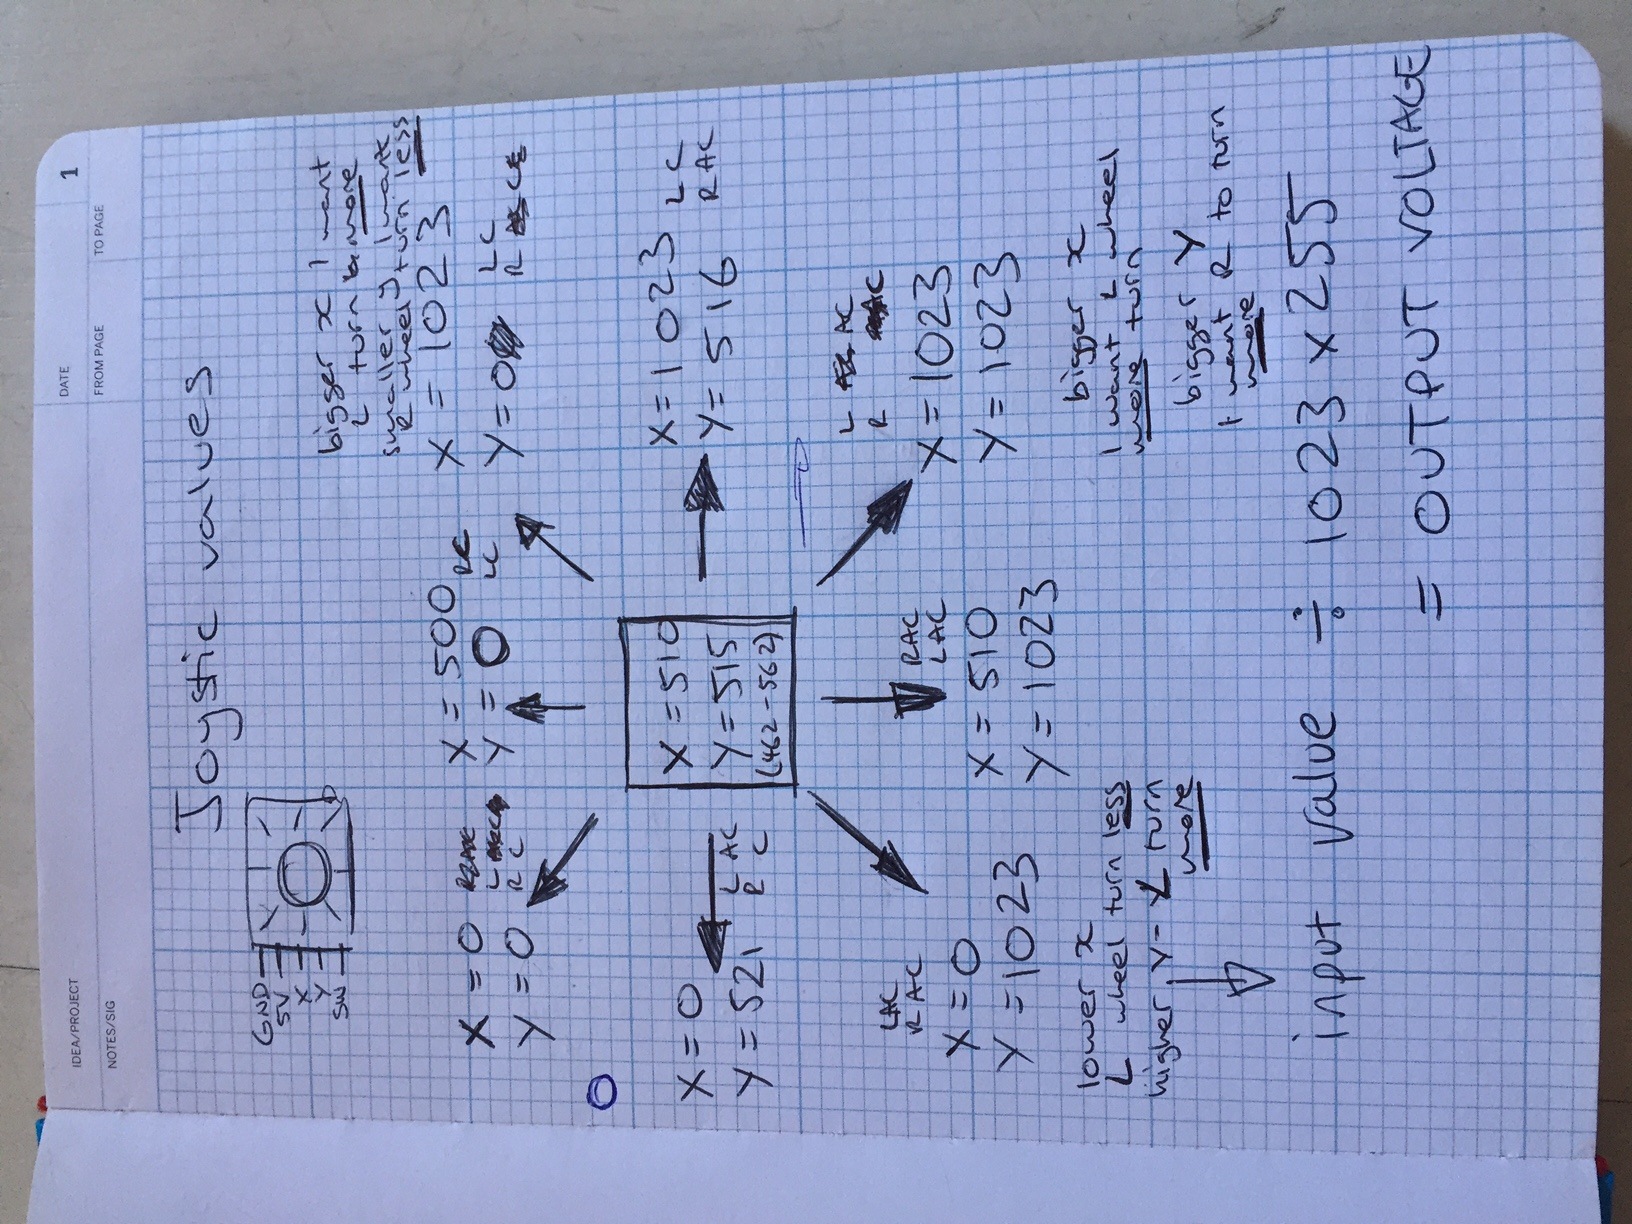 IDEA/PROJECT
DATE
1
NOTES/SIG
FROM PAGE
TO PAGE
Joystic values
GND
5V
X
Y
SW
bigger x I want
L turn more
smaller y I want
R wheel turn less
X = 0
Y = 0
L
R C
X = 500 RC
Y = 0 LC
X = 1023
Y = 0
LC
R C
X = 0
Y = 521
L AC
R C
X = 510
Y = 515
(462-562)
X = 1023 LC
Y = 516 R AC
LAC
R AC
X = 0
Y = 1023
RAC
LAC
X = 510
Y = 1023
L AC
R AC
X = 1023
Y = 1023
lower x
L wheel turn less
higher y - L turn
more
bigger x
I want L wheel
more turn
bigger y
I want R to turn
more
input value ÷ 1023 x 255
= OUTPUT VOLTAGE